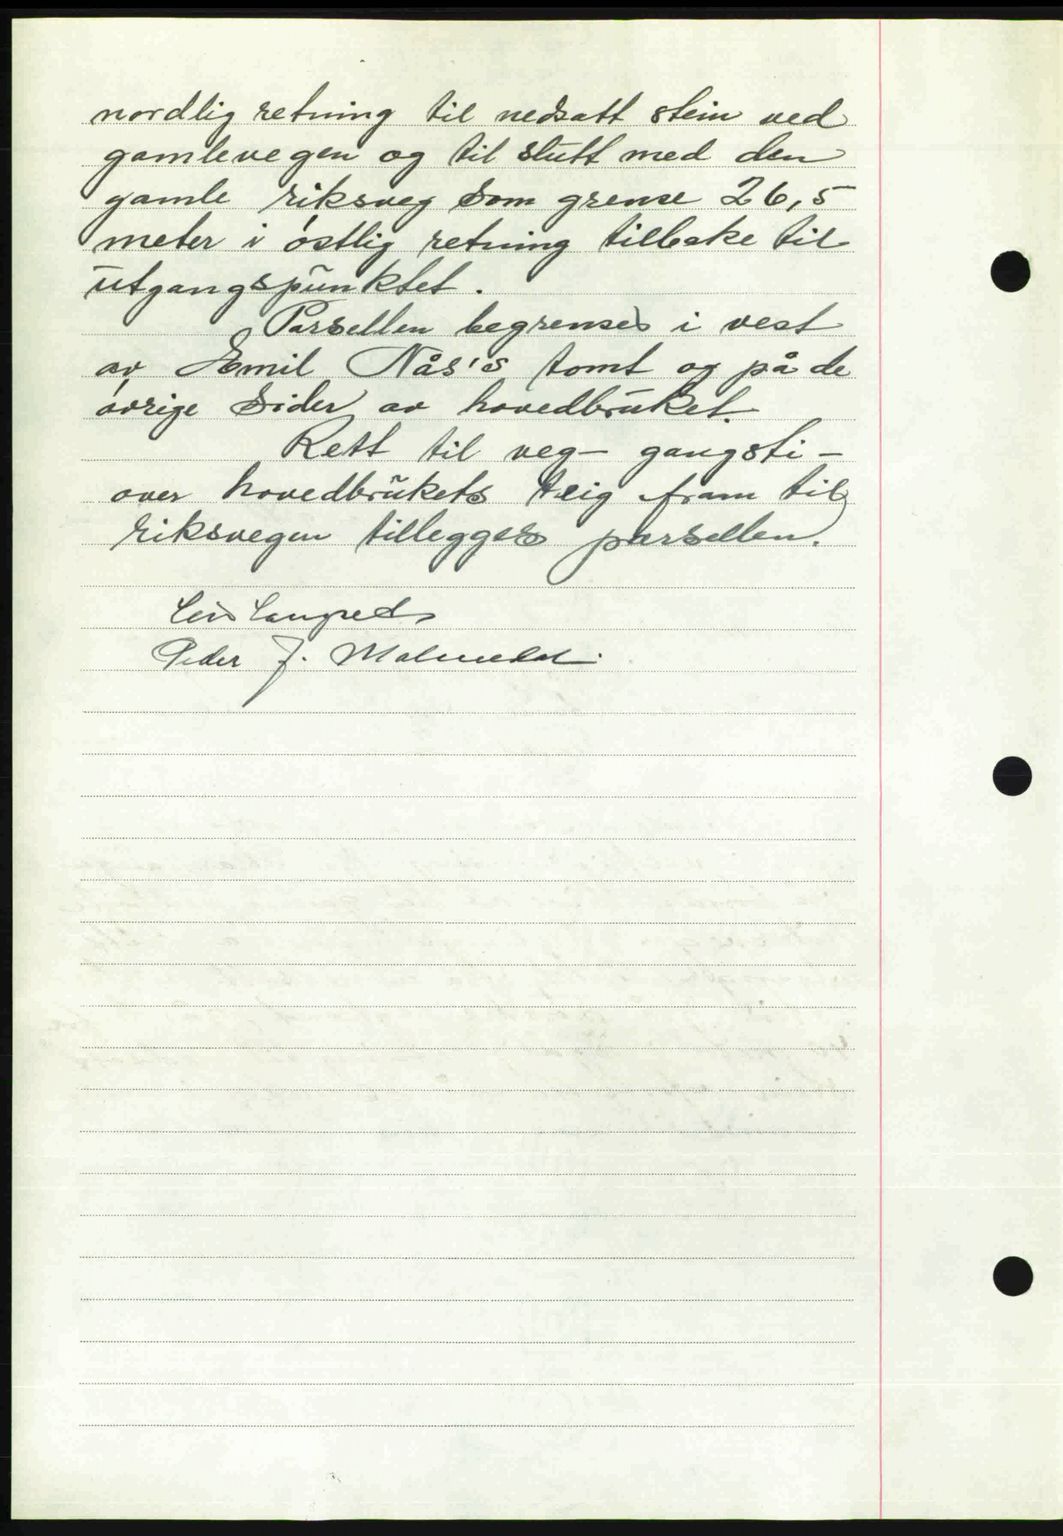 nordlig retning til nedsatt stein ved
gamlevegen og til slutt med den
gamle riksveg som grense 26,5
meter i østlig retning tilbake til
utgangspunktet.
Parsellen begrenses i vest
av Emil Nås's tomt og på de
øvrige sider av hovedbruket.
Rett til veg – gangsti –
over hovedbrukets teig fram til
riksvegen tillegges parsellen.
Peder J. Malmedal.